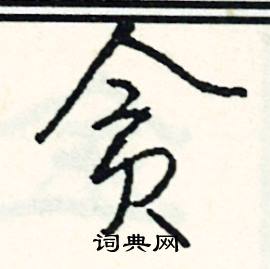 贪
词典网